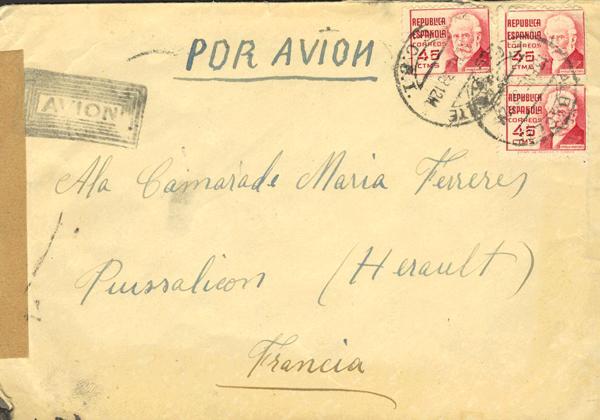 POR AVION
REPUBLICA
ESPAÑOLA
CORREOS
45
CTMS
REPUBLICA
ESPAÑOLA
CORREOS
45
CTMS
REPUBLICA
ESPAÑOLA
CORREOS
45
AVION
Ala Camarade Maria Ferreres
Puissalicon (Herault)
Francia